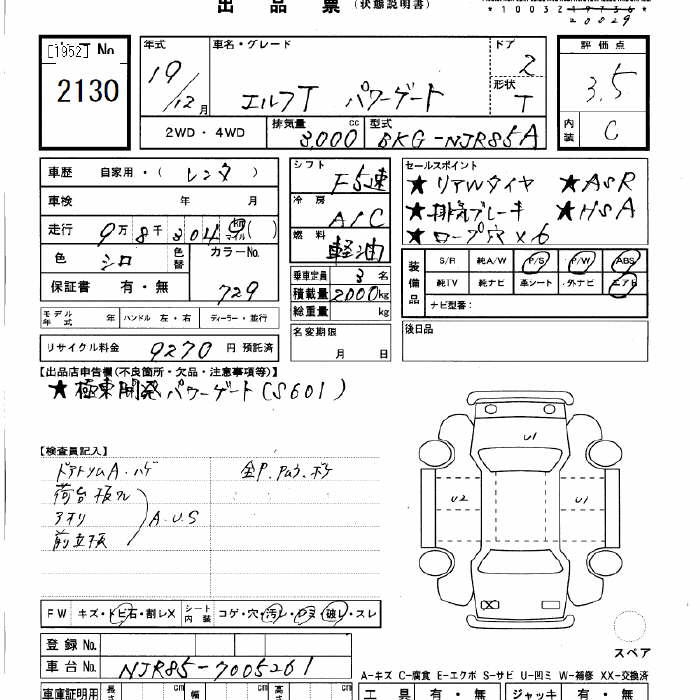 出品票 (状態説明書)
20029
[1952] No
2130
年式 19/12月
車名・グレード エルフT パワーゲート
ドア 2
形状 T
評価点 3.5
内装 C
2WD・4WD
排気量 3,000 cc 型式 BKG-NJR85A
車歴 自家用・(レンタ)
車検 年 月
走行 9万8千304 km マイル ( )
色 シロ 色替 カラーNo. 729
保証書 有・無
モデル年式 年 ハンドル 左・右 ディーラー・並行
リサイクル料金 9270 円 預託済
シフト F5速
冷房 A/C
燃料 軽油
乗車定員 3 名
積載量 2000kg
総重量 kg
名変期限 月 日
セールスポイント
★リアWタイヤ ★ASR
★排気ブレーキ ★HSA
★ロープ穴×6
装備品
S/R 純A/W P/S P/W ABS
純TV 純ナビ 革シート 外ナビ エアB
ナビ型番:
後日品
【出品店申告欄(不良箇所・欠品・注意事項等)】
★極東開発パワーゲート(S601)
【検査員記入】
ドアトリムA.ハゲ
荷台板ワレ
アオリ A.U.S
前立板
U1
U2 U1
X
スペア
FW キズ・トビ石・割レX シート内装 コゲ・穴・汚レ・ハヌケ・破レ・スレ
登録No.
車台No. NJR85-7005261
A-キズ C-腐食 E-エクボ S-サビ U-凹ミ W-補修 XX-交換済
車庫証明用 長さ cm 幅 cm 高さ cm
工具 有・無 ジャッキ 有・無